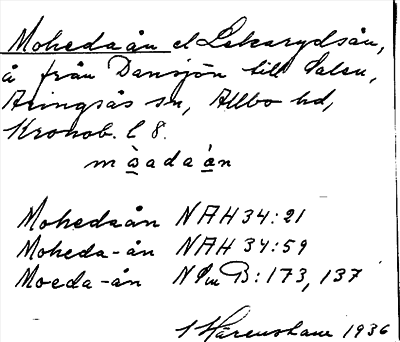 Mohedaån el Lekarydsån,
å från Dansjön till Salen,
Aringsås sn, Allbo hd,
Kronob. l 8.
måadaån
Mohedaån NAH 34:21
Moheda-ån NAH 34:59
Moeda-ån B:173, 137
1936